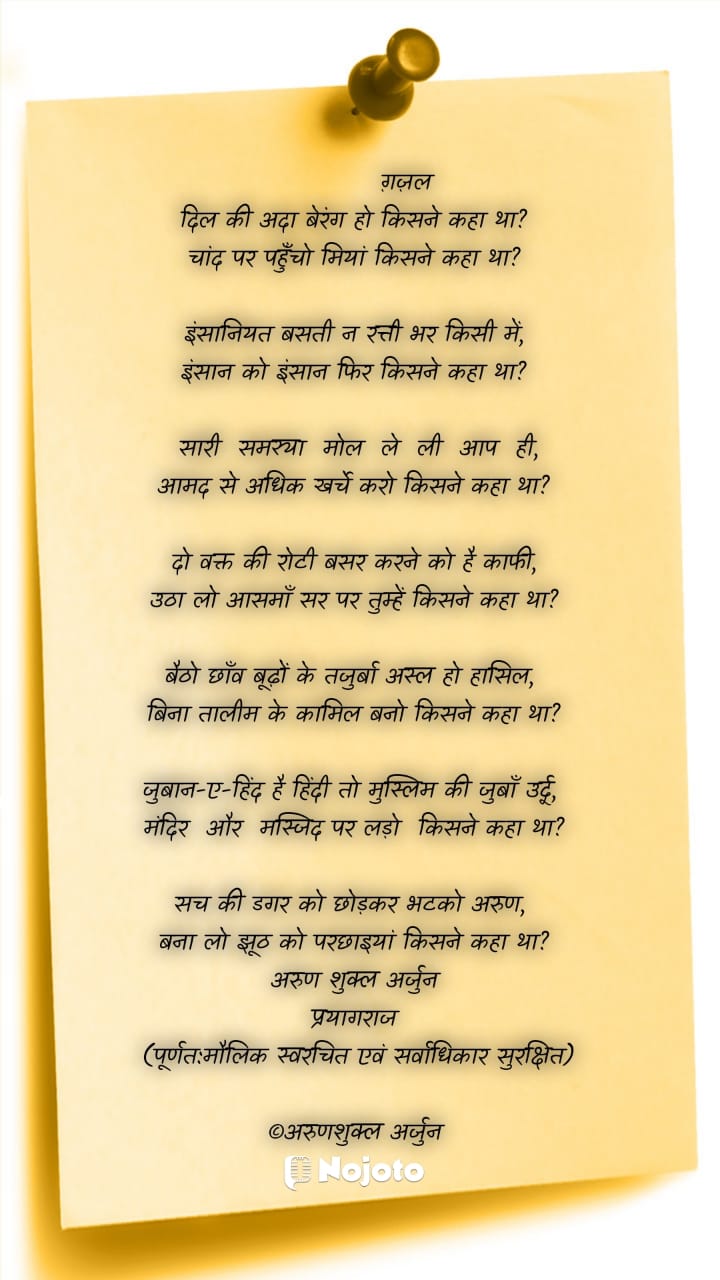 ग़ज़ल
दिल की अदा बेरंग हो किसने कहा था?
चांद पर पहुँचो मियां किसने कहा था?
इंसानियत बसती न रत्ती भर किसी में,
इंसान को इंसान फिर किसने कहा था?
सारी समस्या मोल ले ली आप ही,
आमद से अधिक खर्चे करो किसने कहा था?
दो वक्त की रोटी बसर करने को है काफी,
उठा लो आसमाँ सर पर तुम्हें किसने कहा था?
बैठो छाँव बूढ़ों के तजुर्बा अस्ल हो हासिल,
बिना तालीम के कामिल बनो किसने कहा था?
जुबान-ए-हिंद है हिंदी तो मुस्लिम की जुबाँ उर्दू,
मंदिर और मस्जिद पर लड़ो किसने कहा था?
सच की डगर को छोड़कर भटको अरुण,
बना लो झूठ को परछाइयां किसने कहा था?
अरुण शुक्ल अर्जुन
प्रयागराज
(पूर्णत:मौलिक स्वरचित एवं सर्वाधिकार सुरक्षित)
©अरुणशुक्ल अर्जुन
Nojoto